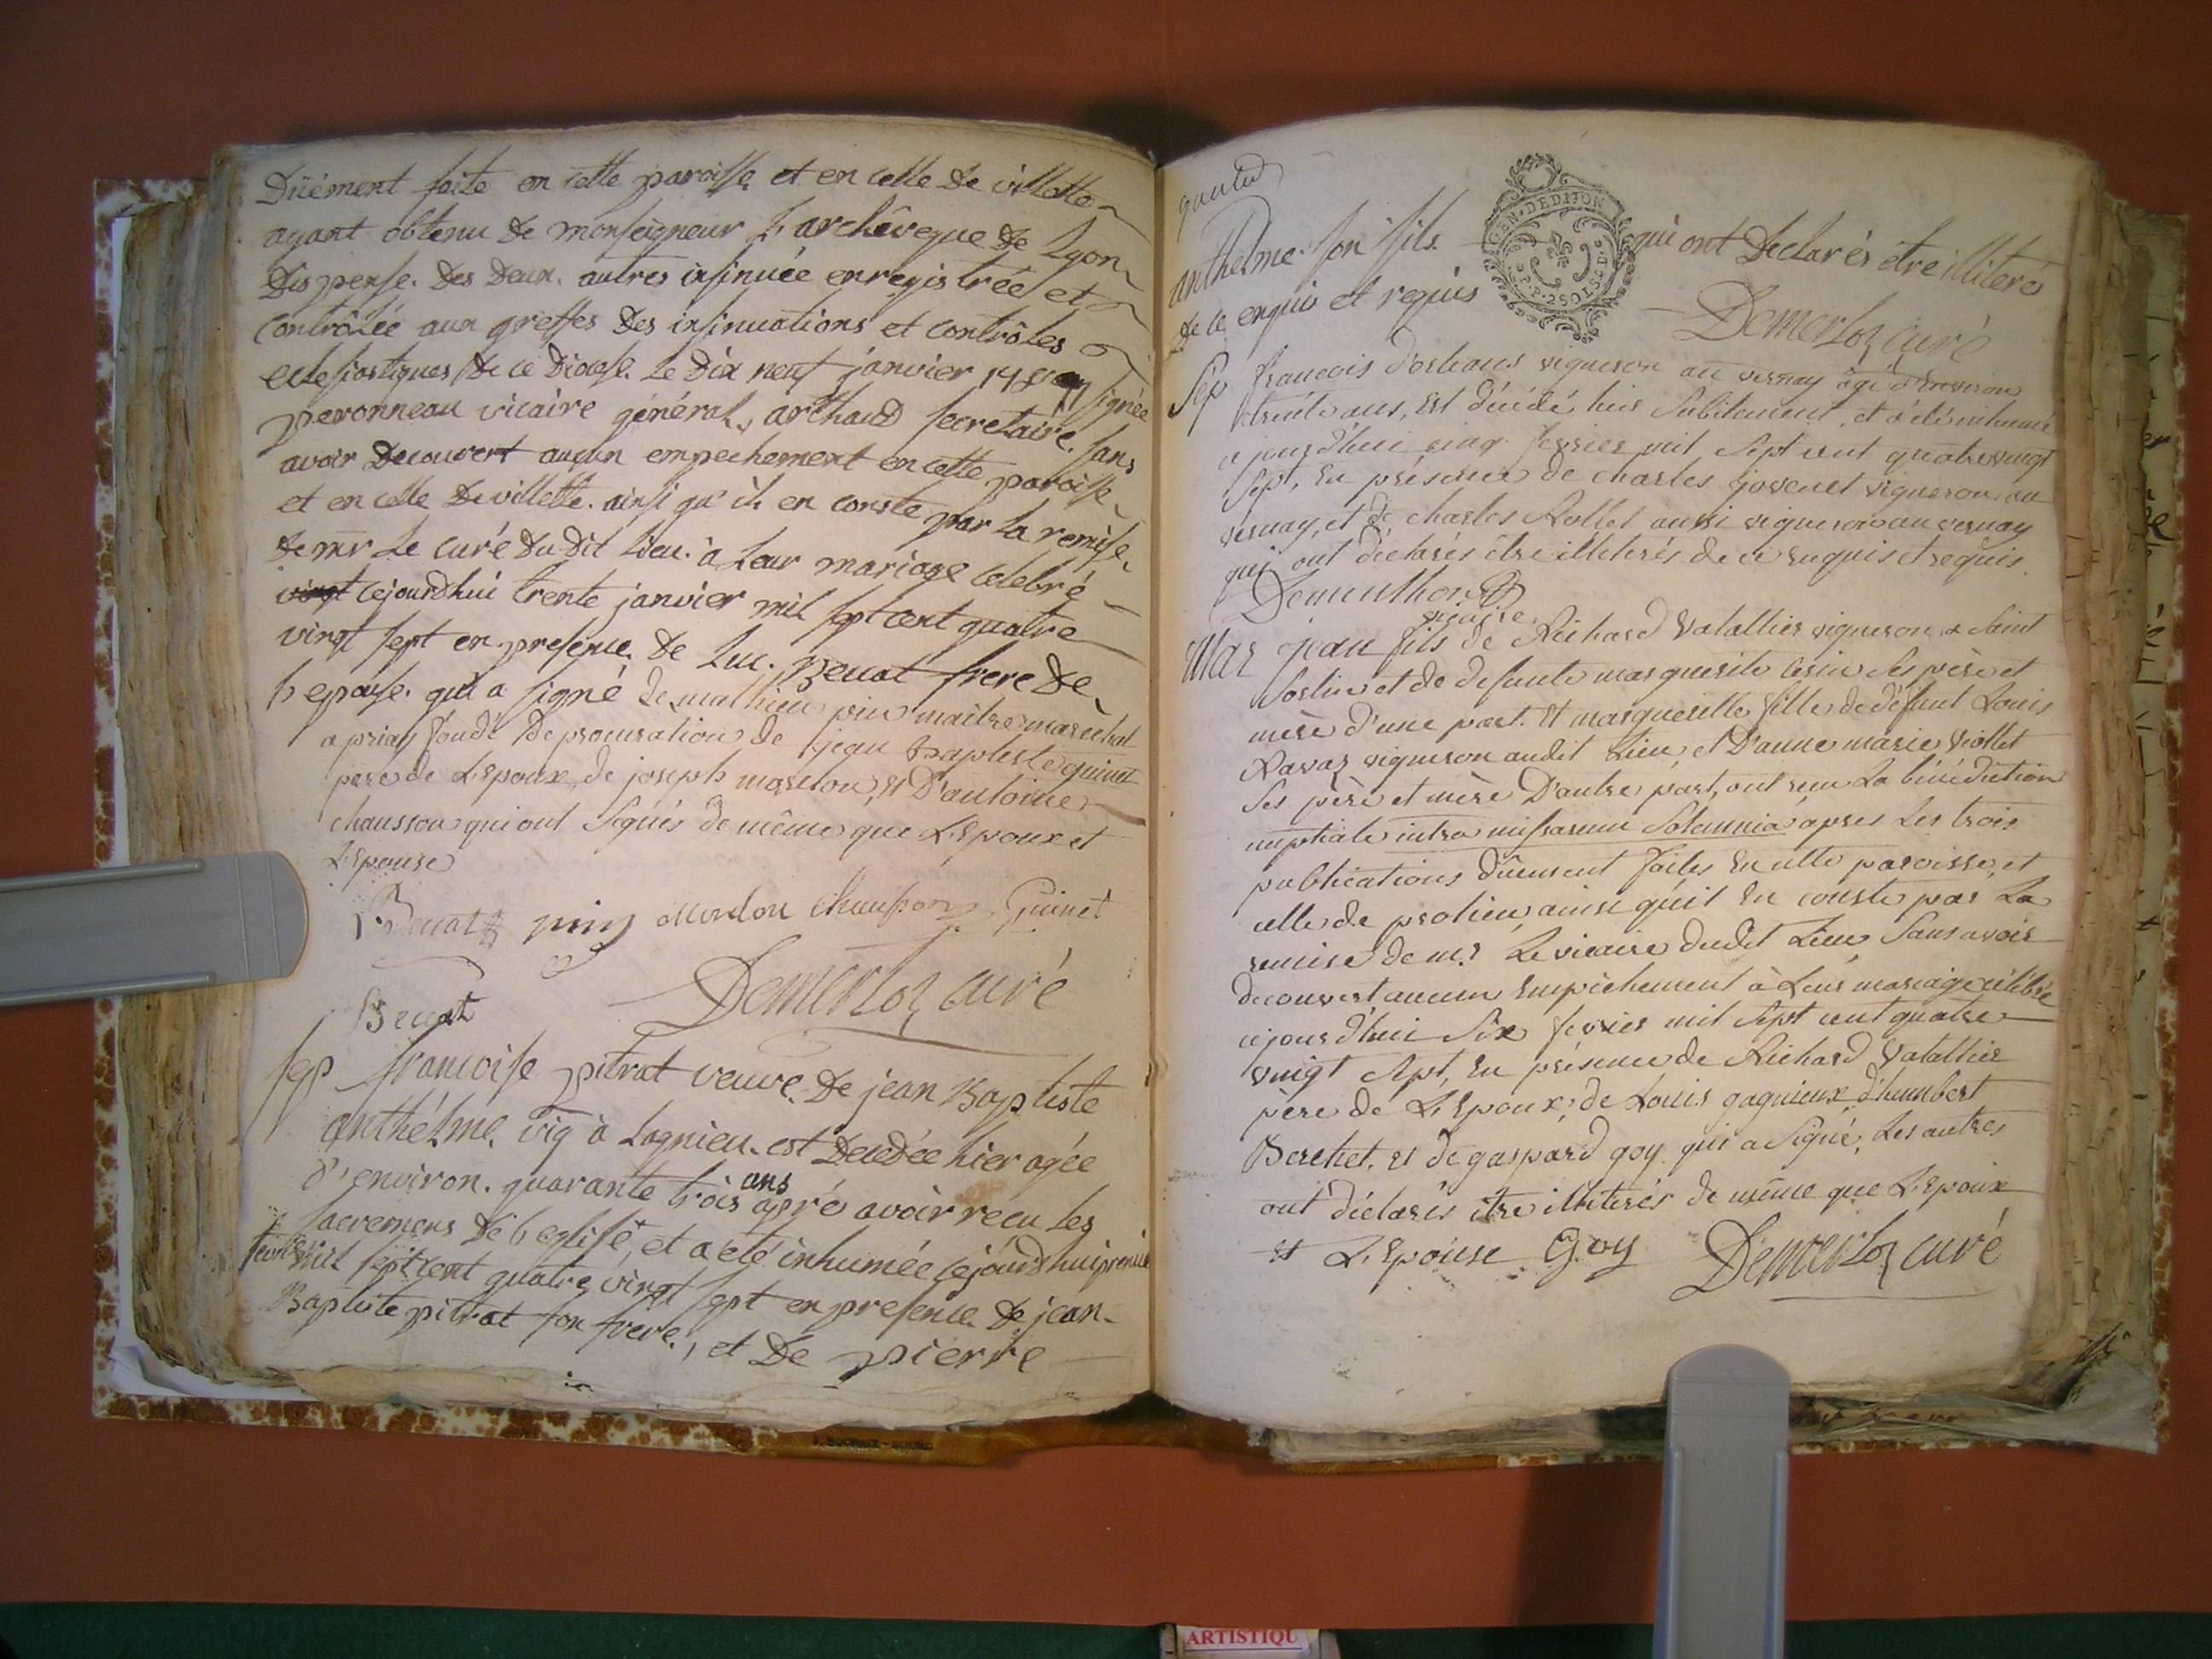 Düement faite en cette paroisse et en celle de villette
ayant obtenu de monseigneur L'archêveque de Lyon
dispense. des deux. autres insinuée enregistrée et
contrôlée aux greffes des insinuations et contrôles
eclesiastiques de ce diocese. Le dix neuf janvier 1787 signée
peronneau vicaire général, arthaud secretaire. sans
avoir decouvert aucun empechement en cette paroisse
et en celle de villette. ainsi qu'il en conste par La remise
de mr Le curé du dit Lieu. à Leur mariage celebré
vingt cejourdhui trente janvier mil sept cent quatre
vingt sept en presence de Luc. Benat frere de
L'epouse. qui a signé de mathieu pin maître maréchal
a priay fondé de procuration de jean baptiste guinet
père de L'Epoux, de joseph morelon, et D'antoine
chausson qui ont signés de même que L'Epoux et
L'Epouse
Benat pin Morelon chausson Guinet
Benat Demerloz curé
sep francoise pitrat veuve. de jean Baptiste
anthélme. vig à Lagnieu. est decedée hier agée
d'environ. quarante trois ans apré avoir reçu Les
sacremens de L'eglise, et a été inhumée cejourdhui premier
fevrier mil sept cent quatre vingt sept en presence de jean-
Baptiste pitrat son frere, et de pierre
anthelme son fils qui ont declarés être illiterés
de ce enquis et requis
GEN. DE DIJON
Demerloz curé
Sep francois dorleans vigneron au vernay âgé d'environ
trente ans, est décédé hier subitement, et a été inhumé
cejourd'hui cinq fevrier mil sept cent quatre vingt
sept, en présence de charles jovenet vigneron au
vernay, et de charles Rollet aussi vigneron au vernay
qui ont déclarés être illiterés de ce enquis et requis.
Dementhon
vicaire
Mar jean fils de Richard Vatallier vigneron a saint
sorlin et de defunte marguerite cerin ses père et
mère d'une part. Et marguerite fille de défunt Louis
Ravaz vigneron audit Lieu, et D'anne marie Viollet
ses père et mère D'autre part, ont reçu La bénédiction
nuptiale intra missarum solemnia après Les trois
publications dûement faites en cette paroisse, et
celle de prolieu, ainsi qu'il en conste par La
remise de mr Le vicaire dudit Lieu, sans avoir
decouvert aucun Empêchement à Leur mariage célébré
cejourd'hui six fevrier mil sept cent quatre
vingt sept, en présence de Richard Vatallier
père de L'Epoux, de Louis gagnieux d'humbert
Berchet, et de gaspard goy qui a signé, Les autres
ont déclarés être illiterés de même que L'Epoux
et L'Epouse Goy Demerloz curé
ARTISTIQU